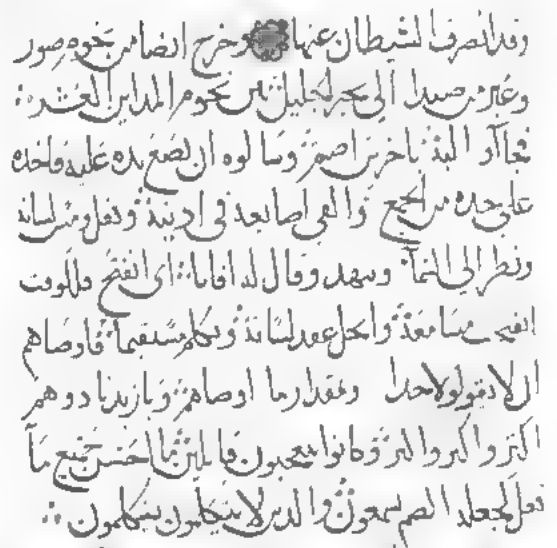 وقد انصرف الشيطان عنها وخرج ايضا من تخوم صور
وعبر من صيدا الى بحر الجليل بين تخوم المداين العشرة
فجاآو اليه باخرس اصم وسالوه ان يضع يده عليه فاخذه
على حده من الجمع والقى اصابعه فى اذنيه وتفل ومس لسانه
ونظر الى السمآ وتنهد وقال له افاتا اى انفتح فللوقت
انفتحت مسامعه وانحل عقد لسانه وتكلم مستقيما فاوصاهم
ان لا يقولو لاحدا وبمقدار ما اوصاهم وبازيد نادو هم
اكثر واكثر وكانوا يتعجبون قايلين ما احسن جميع مآ
فعل لجعله الصم يسمعون والذين لا يتكلمون يتكلمون